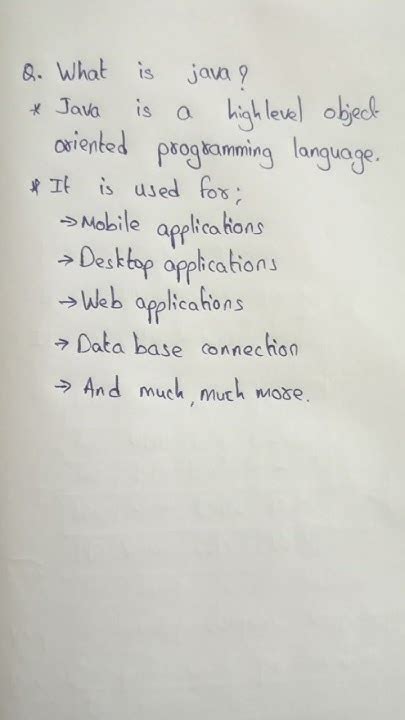 Q. What is java?
* Java is a high level object
oriented programming language.
* It is used for;
→ Mobile applications
→ Desktop applications
→ Web applications
→ Data base connection
→ And much, much more.